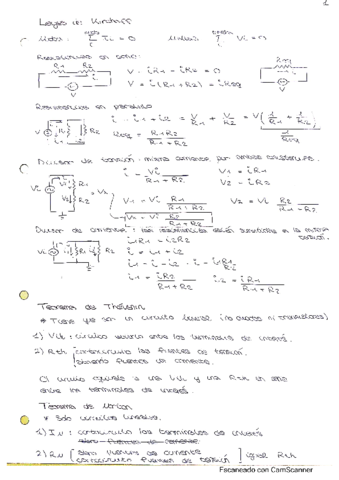 Leyes de Kirchoff
Nudos: Σ Ii = 0 Mallas: Σ Vi = 0
Resistencias en serie:
R1 R2
V - iR1 - iR2 = 0
V = i(R1+R2) = iReq
Resistencias en paralelo
i = i1 + i2 = V/R1 + V/R2 = V(1/R1 + 1/R2)
Req = R1R2/R1+R2
1/Req
Divisor de tensión: misma corriente por ambas
i = Vi/R1+R2
V1 = iR1
V2 = iR2
V2 = Vi R2/R1+R2
Divisor de corriente: las resistencias están sometidas a la misma tensión.
i1R1 = i2R2
i = i1 + i2
i1 = iR2/R1+R2 i2 = iR1/R1+R2
Teorema de Thévenin
* Tiene que ser un circuito lineal (no diodos ni transistores)
1) Vth: circuito abierto entre los terminales de interés.
2) Rth cortocircuito las fuentes de tensión.
abriendo fuentes de corriente.
El circuito equivale a una Vth y una Rth en serie
entre los terminales de interés.
Teorema de Norton
* Solo circuitos lineales.
1) IN: cortocircuito los terminales de interés
2) RN abro fuentes de corriente
cortocircuito fuentes de tensión igual Rth
Escaneado con CamScanner